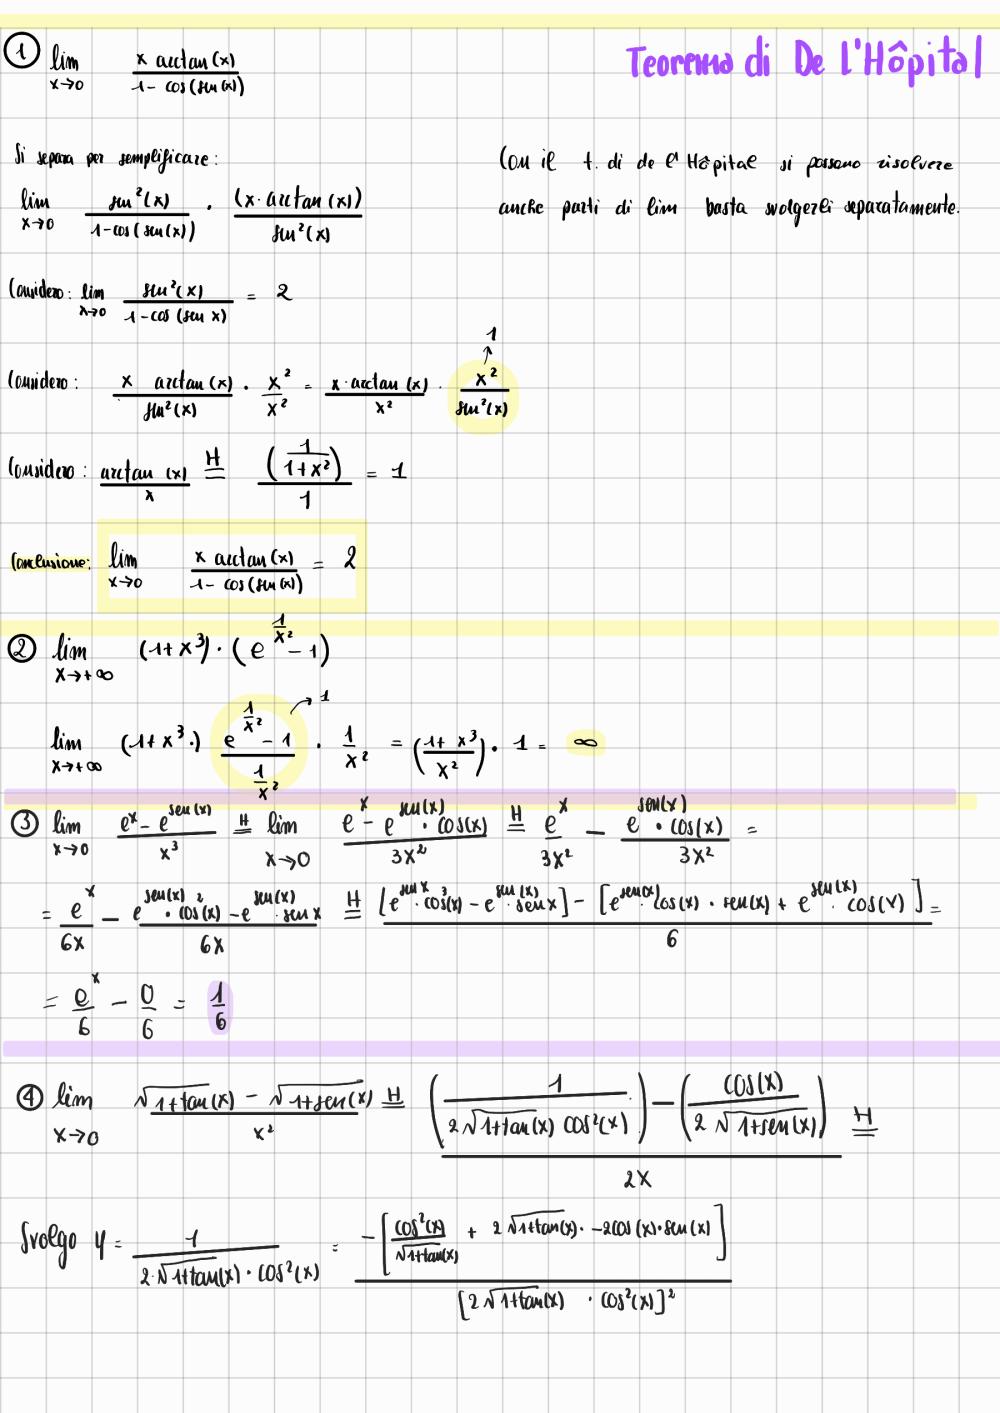 Teorema di De l'Hôpital
① lim x→0 x arctan(x) / 1 - cos(sen(x))
Si separa per semplificare:
lim x→0 sen²(x) / 1-cos(sen(x)) · (x·arctan(x)) / sen²(x)
Con il t. di de l'Hôpital si possono risolvere
anche parti di lim basta svolgerli separatamente.
Considero: lim x→0 sen²(x) / 1-cos(sen x) = 2
Considero: x arctan(x) / sen²(x) · x² / x² = x·arctan(x) / x² · x² / sen²(x) → 1
Considero: arctan(x) / x =ᴴ (1 / 1+x²) / 1 = 1
Conclusione: lim x→0 x arctan(x) / 1 - cos(sen(x)) = 2
② lim x→+∞ (1+x³)·(e^(1/x²) - 1)
lim x→+∞ (1+x³·) (e^(1/x²) - 1) / (1/x²) → 1 · 1/x² = (1+x³ / x²)· 1 = ∞
③ lim x→0 e^x - e^sen(x) / x³ =ᴴ lim x→0 e^x - e^sen(x) · cos(x) / 3x² =ᴴ e^x / 3x² - e^sen(x) · cos(x) / 3x² =
= e^x / 6x - e^sen(x) · cos²(x) - e^sen(x) · sen x / 6x =ᴴ [e^sen x · cos³(x) - e^sen(x) · sen x] - [e^sen(x) · cos(x) · sen(x) + e^sen(x) · cos(x)] / 6 =
= e^x / 6 - 0 / 6 = 1 / 6
④ lim x→0 √1+tan(x) - √1+sen(x) / x² =ᴴ (1 / 2√1+tan(x) cos²(x)) - (cos(x) / 2√1+sen(x)) / 2x =ᴴ
Svolgo y = 1 / 2·√1+tan(x) · cos²(x) = -[cos²(x) / √1+tan(x) + 2√1+tan(x) · -2cos(x)·sen(x)] / [2√1+tan(x) · cos²(x)]²